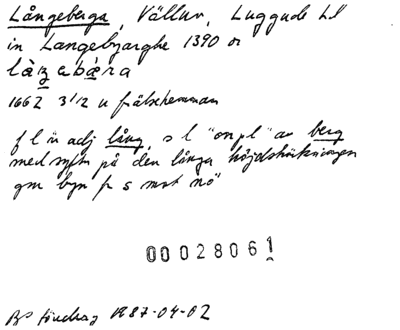 Långeberga, Vällur, Luggude hd
in Langebyarghe 1390 or
1662 3 1/2 u frälsehemman
f l ä adj lång, s l "onpl" av berg
med syftn på den långa höjdsträckningen
gm byn fr s mot nö"
00028061
föredrag 1987-04-02